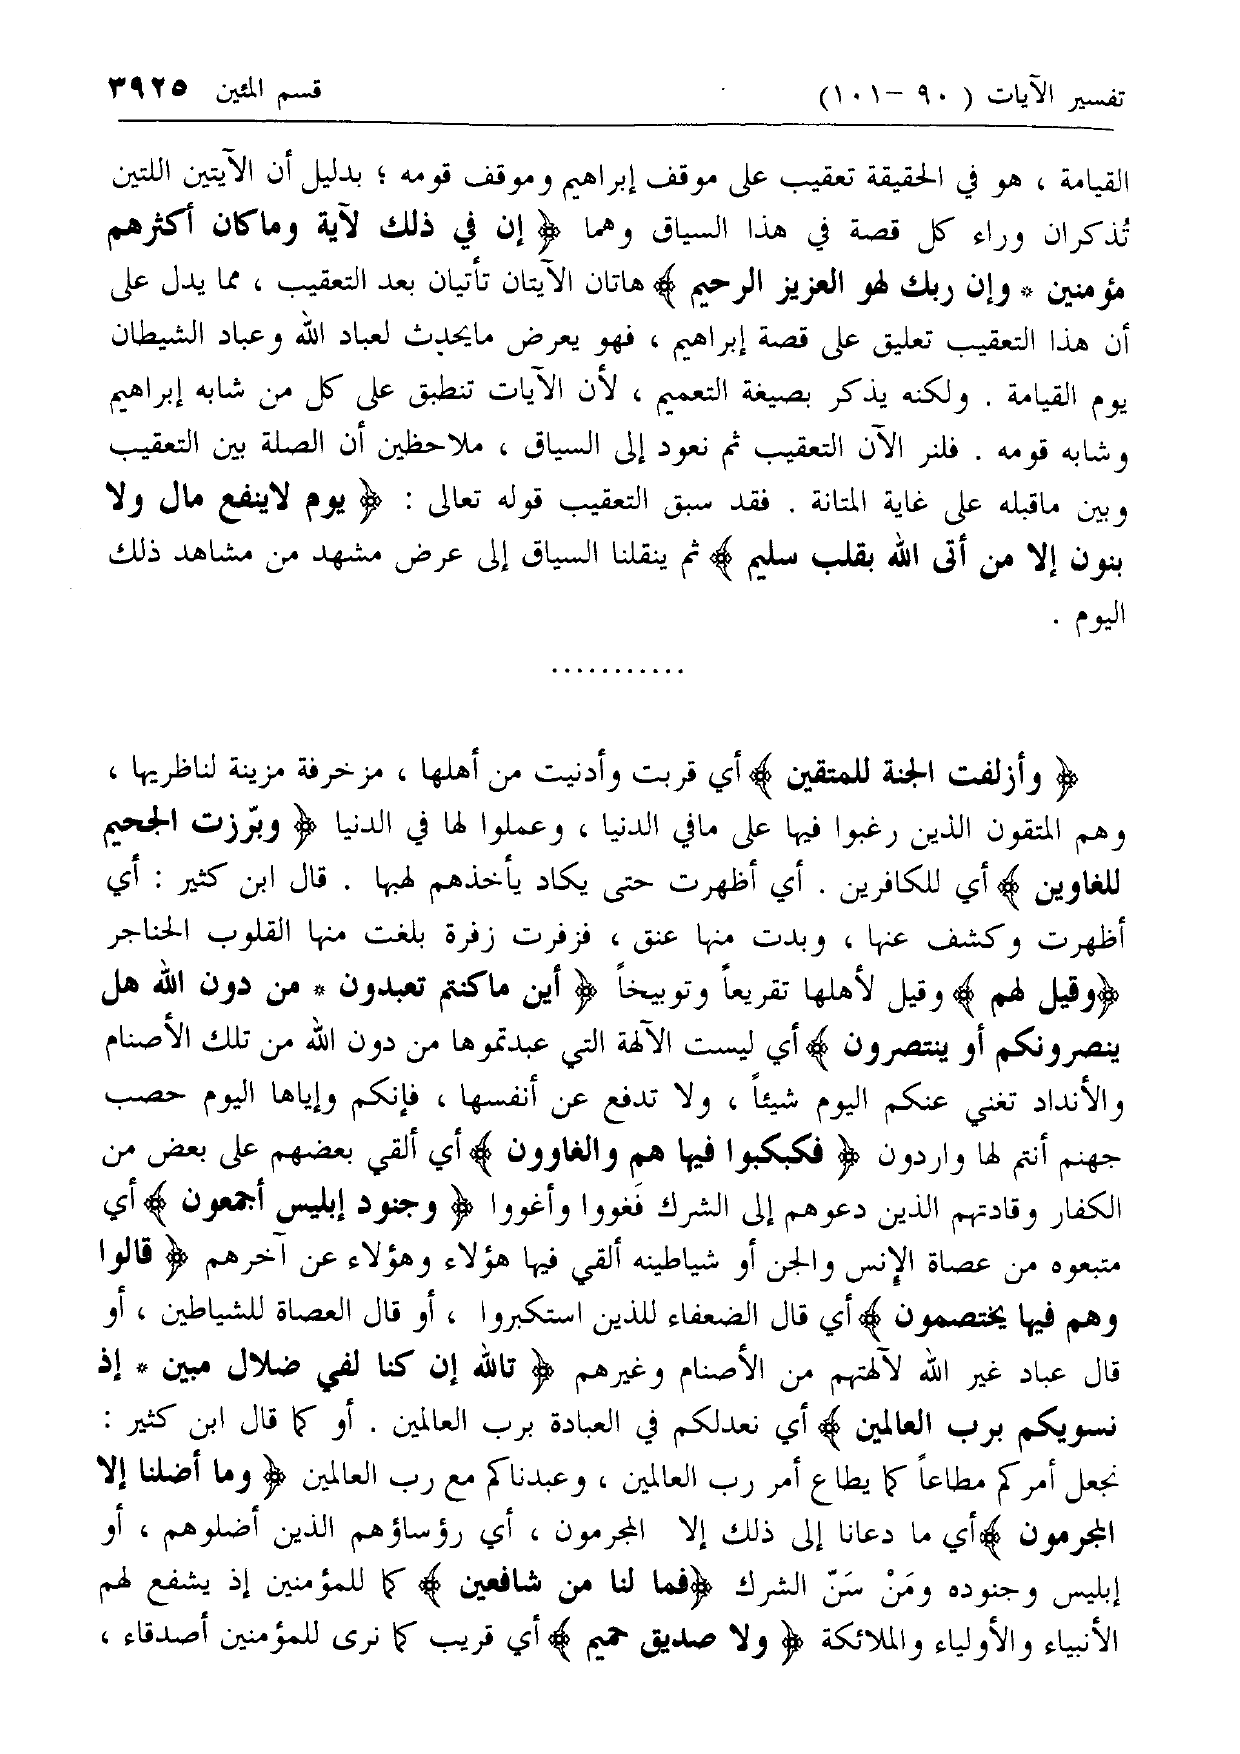 تفسير الآيات ( ٩٠ – ١٠١) قسم المئين ٣٩٢٥
القيامة ، هو في الحقيقة تعقيب على موقف إبراهيم وموقف قومه ؛ بدليل أن الآيتين اللتين
تُذكران وراء كل قصة في هذا السياق وهما ﴿ إن في ذلك لآية وماكان أكثرهم
مؤمنين * وإن ربك لهو العزيز الرحيم ﴾ هاتان الآيتان تأتيان بعد التعقيب ، مما يدل على
أن هذا التعقيب تعليق على قصة إبراهيم ، فهو يعرض مايحدث لعباد الله وعباد الشيطان
يوم القيامة . ولكنه يذكر بصيغة التعميم ، لأن الآيات تنطبق على كل من شابه إبراهيم
وشابه قومه . فلنر الآن التعقيب ثم نعود إلى السياق ، ملاحظين أن الصلة بين التعقيب
وبين ماقبله على غاية المتانة . فقد سبق التعقيب قوله تعالى : ﴿ يوم لاينفع مال ولا
بنون إلا من أتى الله بقلب سليم ﴾ ثم ينقلنا السياق إلى عرض مشهد من مشاهد ذلك
اليوم .
...........
﴿ وأزلفت الجنة للمتقين ﴾ أي قربت وأدنيت من أهلها ، مزخرفة مزينة لناظريها ،
وهم المتقون الذين رغبوا فيها على مافي الدنيا ، وعملوا لها في الدنيا ﴿ وبرّزت الجحيم
للغاوين ﴾ أي للكافرين . أي أظهرت حتى يكاد يأخذهم لهبها . قال ابن كثير : أي
أظهرت وكشف عنها ، وبدت منها عنق ، فزفرت زفرة بلغت منها القلوب الحناجر
﴿وقيل لهم ﴾ وقيل لأهلها تقريعاً وتوبيخاً ﴿ أين ماكنتم تعبدون * من دون الله هل
ينصرونكم أو ينتصرون ﴾ أي ليست الآلهة التي عبدتموها من دون الله من تلك الأصنام
والأنداد تغني عنكم اليوم شيئاً ، ولا تدفع عن أنفسها ، فإنكم وإياها اليوم حصب
جهنم أنتم لها واردون ﴿ فكبكبوا فيها هم والغاوون ﴾ أي ألقي بعضهم على بعض من
الكفار وقادتهم الذين دعوهم إلى الشرك فَغووا وأغووا ﴿ وجنود إبليس أجمعون ﴾ أي
متبعوه من عصاة الإنس والجن أو شياطينه ألقي فيها هؤلاء وهؤلاء عن آخرهم ﴿ قالوا
وهم فيها يختصمون ﴾ أي قال الضعفاء للذين استكبروا ، أو قال العصاة للشياطين ، أو
قال عباد غير الله لآلهتهم من الأصنام وغيرهم ﴿ تالله إن كنا لفي ضلال مبين * إذ
نسويكم برب العالمين ﴾ أي نعدلكم في العبادة برب العالمين . أو كما قال ابن كثير :
نجعل أمركم مطاعاً كما يطاع أمر رب العالمين ، وعبدناكم مع رب العالمين ﴿ وما أضلنا إلا
المجرمون ﴾أي ما دعانا إلى ذلك إلا المجرمون ، أي رؤساؤهم الذين أضلوهم ، أو
إبليس وجنوده ومَنْ سَنّ الشرك ﴿فما لنا من شافعين ﴾ كما للمؤمنين إذ يشفع لهم
الأنبياء والأولياء والملائكة ﴿ ولا صديق حميم ﴾ أي قريب كما نرى للمؤمنين أصدقاء ،